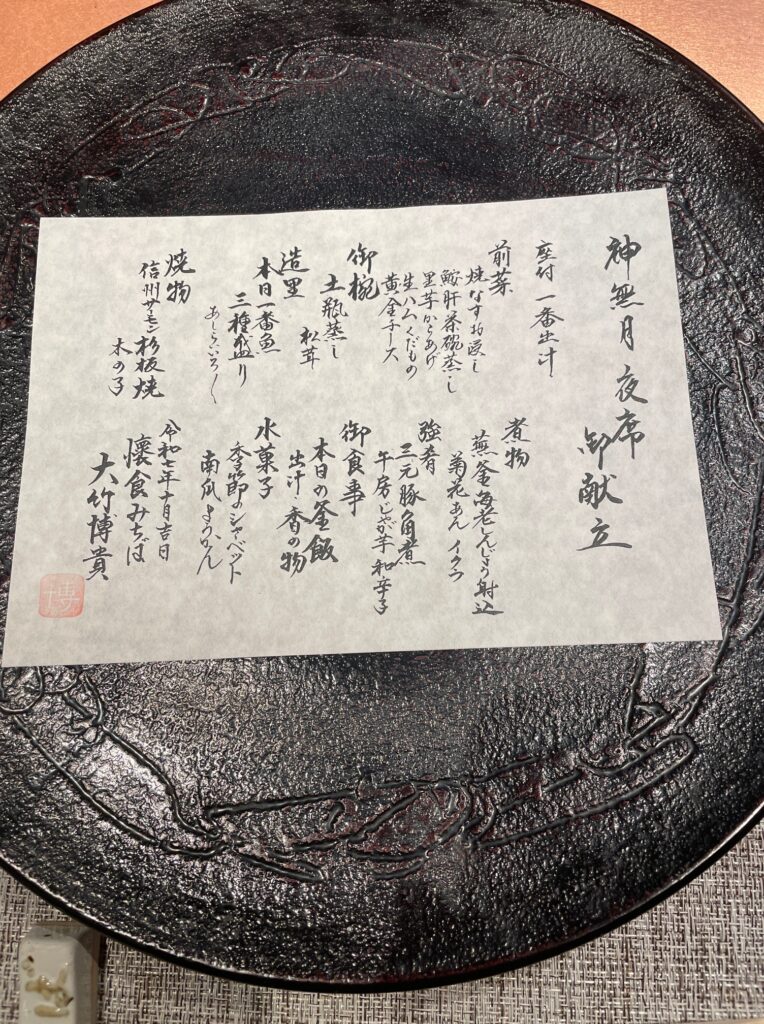 神無月 夜席
御献立
座付 一番出汁
前菜
焼なすお浸し
鮟肝茶碗蒸し
里芋からあげ
生ハムくだもの
黄金チーズ
御椀
土瓶蒸し
松茸
造里
本日一番魚
三種盛り
あしらいいろ〱
焼物
信州サーモン杉板焼
木の子
煮物
蕪釜海老しんじょう射込
菊花あん イクラ
強肴
三元豚角煮
牛房 じゃが芋 和辛子
御食事
本日の釜飯
出汁 香の物
水菓子
季節のシャベット
南瓜ようかん
令和七年十月吉日
懐食みちば
大竹博貴
博